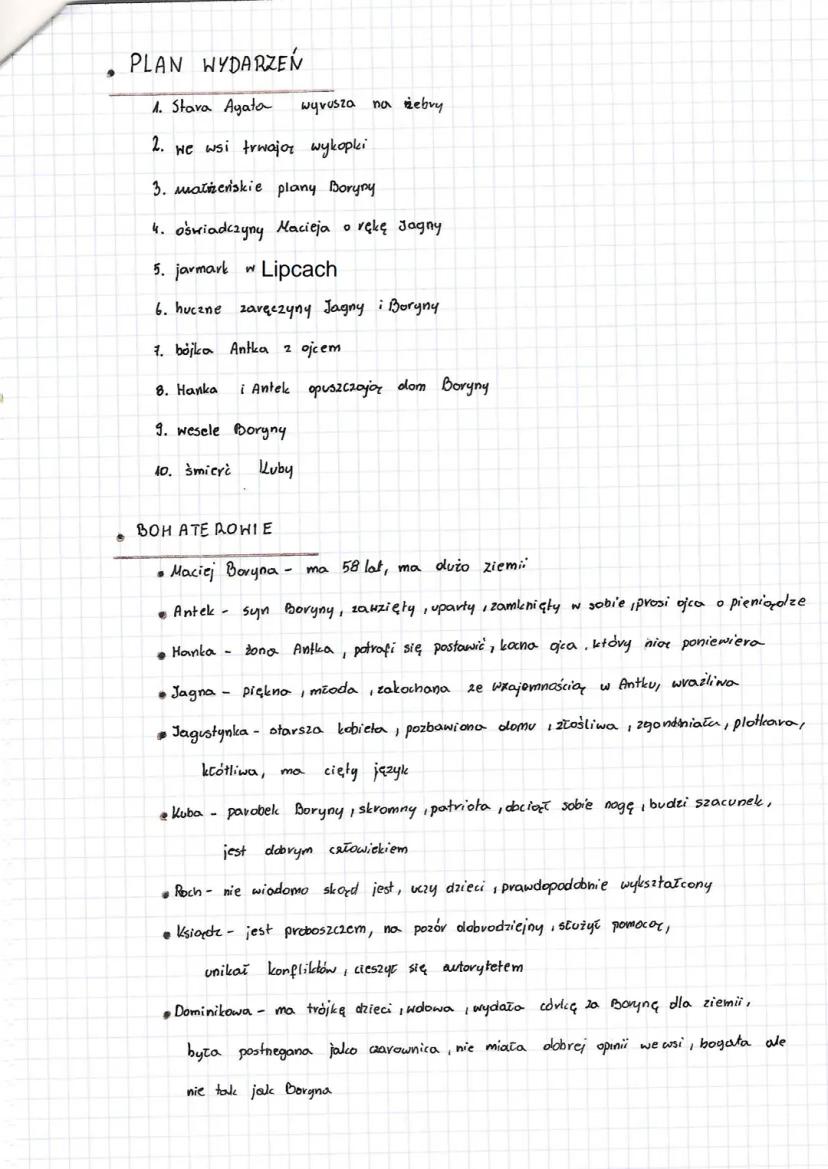 • PLAN WYDARZEŃ
1. Stara Agata wyrusza na żebry
2. we wsi trwają wykopki
3. małżeńskie plany Boryny
4. oświadczyny Macieja o rękę Jagny
5. jarmark w Lipcach
6. huczne zaręczyny Jagny i Boryny
7. bójka Antka z ojcem
8. Hanka i Antek opuszczają dom Boryny
9. wesele Boryny
10. śmierć Kuby
• BOHATEROWIE
• Maciej Boryna - ma 58 lat, ma dużo ziemii
• Antek - syn Boryny, zawzięty, uparty, zamknięty w sobie, prosi ojca o pieniądze
• Hanka - żona Antka, potrafi się postawić, kocha ojca, który nią poniewiera
• Jagna - piękna, młoda, zakochana ze wzajemnością w Antku, wrażliwa
• Jagustynka - starsza kobieta, pozbawiona domu, złośliwa, plotkara,
kłótliwa, ma cięty język
• Kuba - parobek Boryny, skromny, patriota, obciął sobie nogę, budzi szacunek,
jest dobrym człowiekiem
• Roch - nie wiadomo skąd jest, uczy dzieci, prawdopodobnie wykształcony
• Ksiądz - jest proboszczem, na pozór dobrodziejny, służył pomocą,
unikał konfliktów, cieszył się autorytetem
• Dominikowa - ma trójkę dzieci, wdowa, wydała córkę za Borynę dla ziemii,
była postrzegana jako czarownica, nie miała dobrej opinii we wsi, bogata ale
nie tak jak Boryna